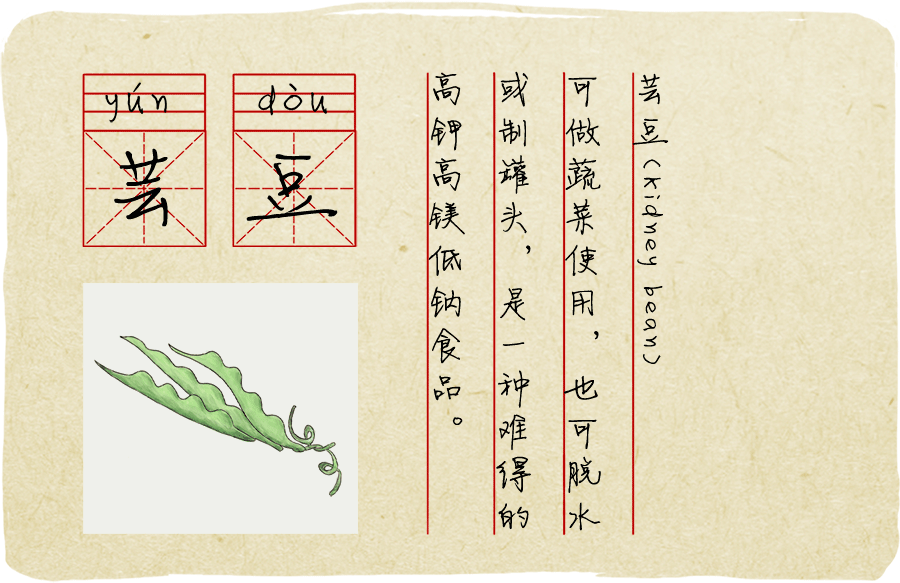 yún dòu
芸豆
芸豆(kidney bean)
可做蔬菜使用，也可脱水
或制罐头，是一种难得的
高钾高镁低钠食品。